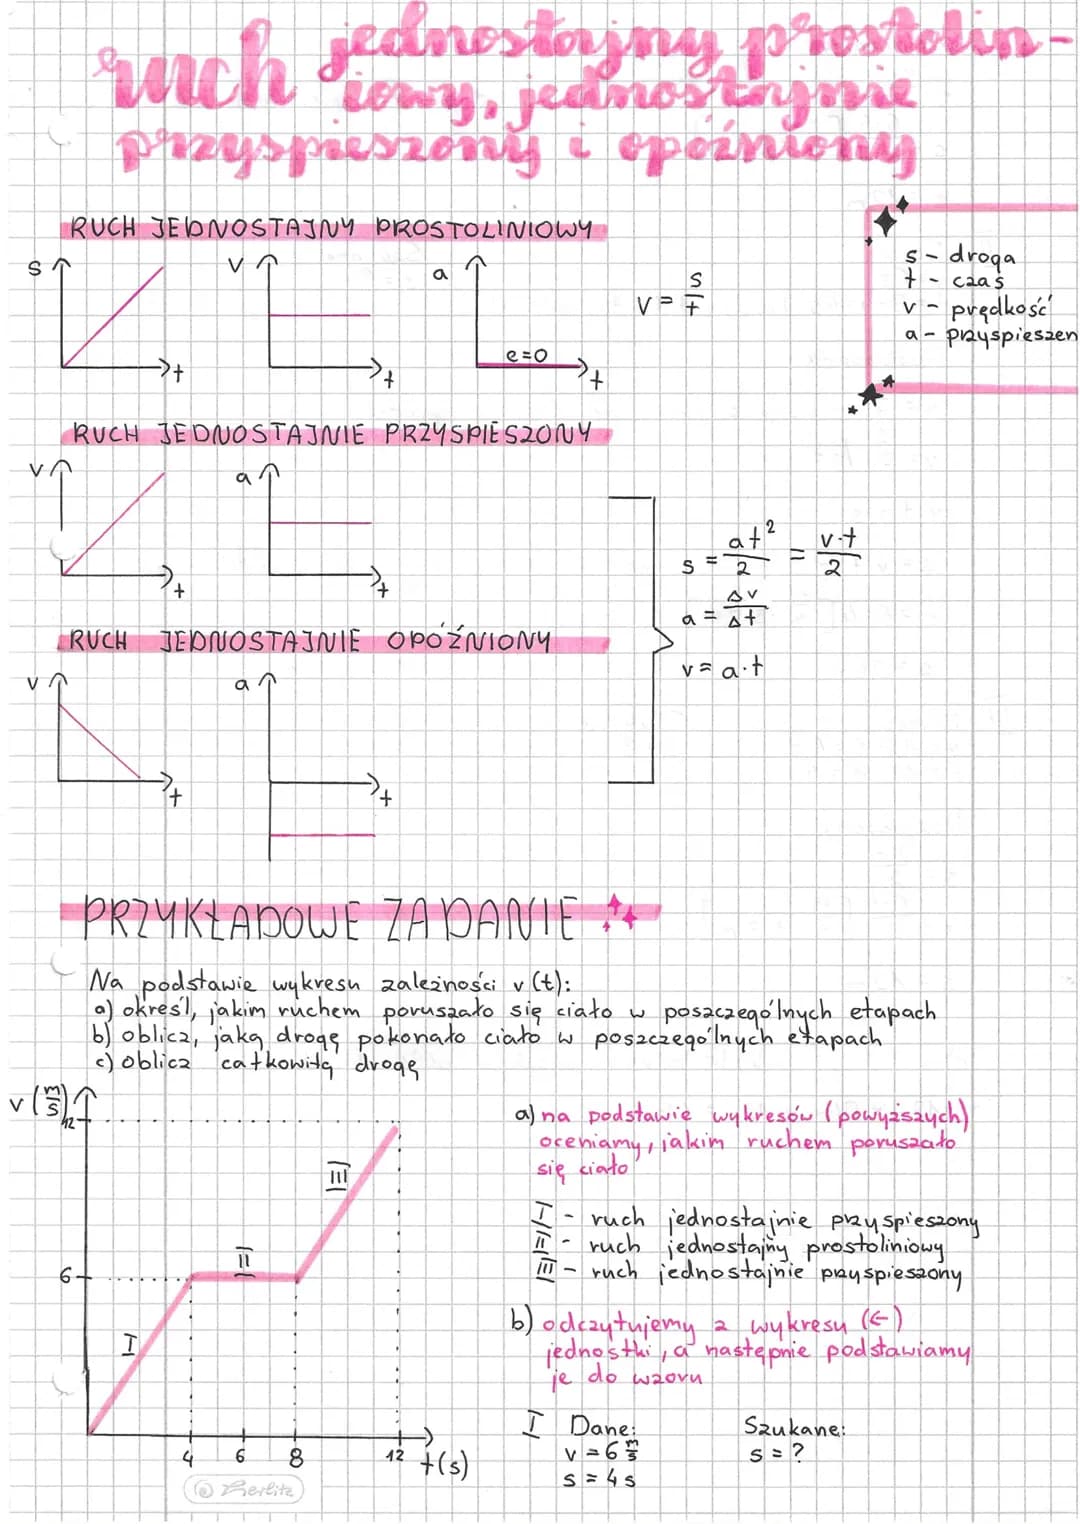 ruch jednostajny prostolin-
iowy, jednostajnie
przyspieszony i opóźniony
RUCH JEDNOSTAJNY PROSTOLINIOWY
s
t
v
t
a
e=0
t
v = s/t
s - droga
t - czas
v - prędkość
a - przyspieszen
RUCH JEDNOSTAJNIE PRZYSPIESZONY
v
t
a
t
s = at²/2 = v·t/2
a = Δv/Δt
v = a·t
RUCH JEDNOSTAJNIE OPÓŹNIONY
v
t
a
t
PRZYKŁADOWE ZADANIE
Na podstawie wykresu zależności v(t):
a) określ, jakim ruchem poruszało się ciało w poszczególnych etapach
b) oblicz, jaką drogę pokonało ciało w poszczególnych etapach
c) oblicz całkowitą drogę
v (m/s)
12
6
I
II
III
4 6 8 12 t(s)
a) na podstawie wykresów (powyższych)
oceniamy, jakim ruchem poruszało
się ciało
I - ruch jednostajnie przyspieszony
II - ruch jednostajny prostoliniowy
III - ruch jednostajnie przyspieszony
b) odczytujemy z wykresu (←)
jednostki, a następnie podstawiamy
je do wzoru
I Dane: Szukane:
v = 6 m/s s = ?
s = 4 s